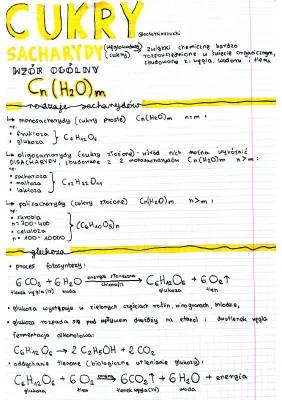 CUKRY
SACHARYDY (węglowodany) (cukry) → związki chemiczne bardzo
rozpowszechnione w świecie organicznym,
zbudowane z: węgla, wodoru i tlenu
WZÓR OGÓLNY
Cn(H₂O)m
rodzaje sacharydów
→ monosacharydy (cukry proste) Cn(H₂O)m n=m:
np:
• fruktoza
• glukoza } C₆H₁₂O₆
→ oligosacharydy (cukry złożone): wśród nich można wyróżnić
DISACHARYDY, zbudowane z 2 monosacharydów Cn(H₂O)m n>m:
np:
• sacharoza
• maltoza
• laktoza } C₁₂H₂₂O₁₁
→ polisacharydy (cukry złożone) Cn(H₂O)m n>m:
np:
• skrobia
n=300-400
• celuloza
n=100-10000 } (C₆H₁₀O₅)n
glukoza
• proces fotosyntezy:
6CO₂ + 6H₂O energia słoneczna chlorofil → C₆H₁₂O₆ + 6O₂↑
tlenek węgla(IV) woda glukoza tlen
• glukoza występuje w zielonych częściach roślin, winogronach, miodzie,
• glukoza rozpada się pod wpływem drożdży na etanol i dwutlenek węgla
fermentacja alkoholowa:
C₆H₁₂O₆ → 2 C₂H₅OH + 2 CO₂
• oddychanie tlenowe (biologiczne utlenianie glukozy):
C₆H₁₂O₆ + 6O₂ → 6CO₂↑ + 6H₂O + energia
glukoza tlen tlenek węgla(IV) woda